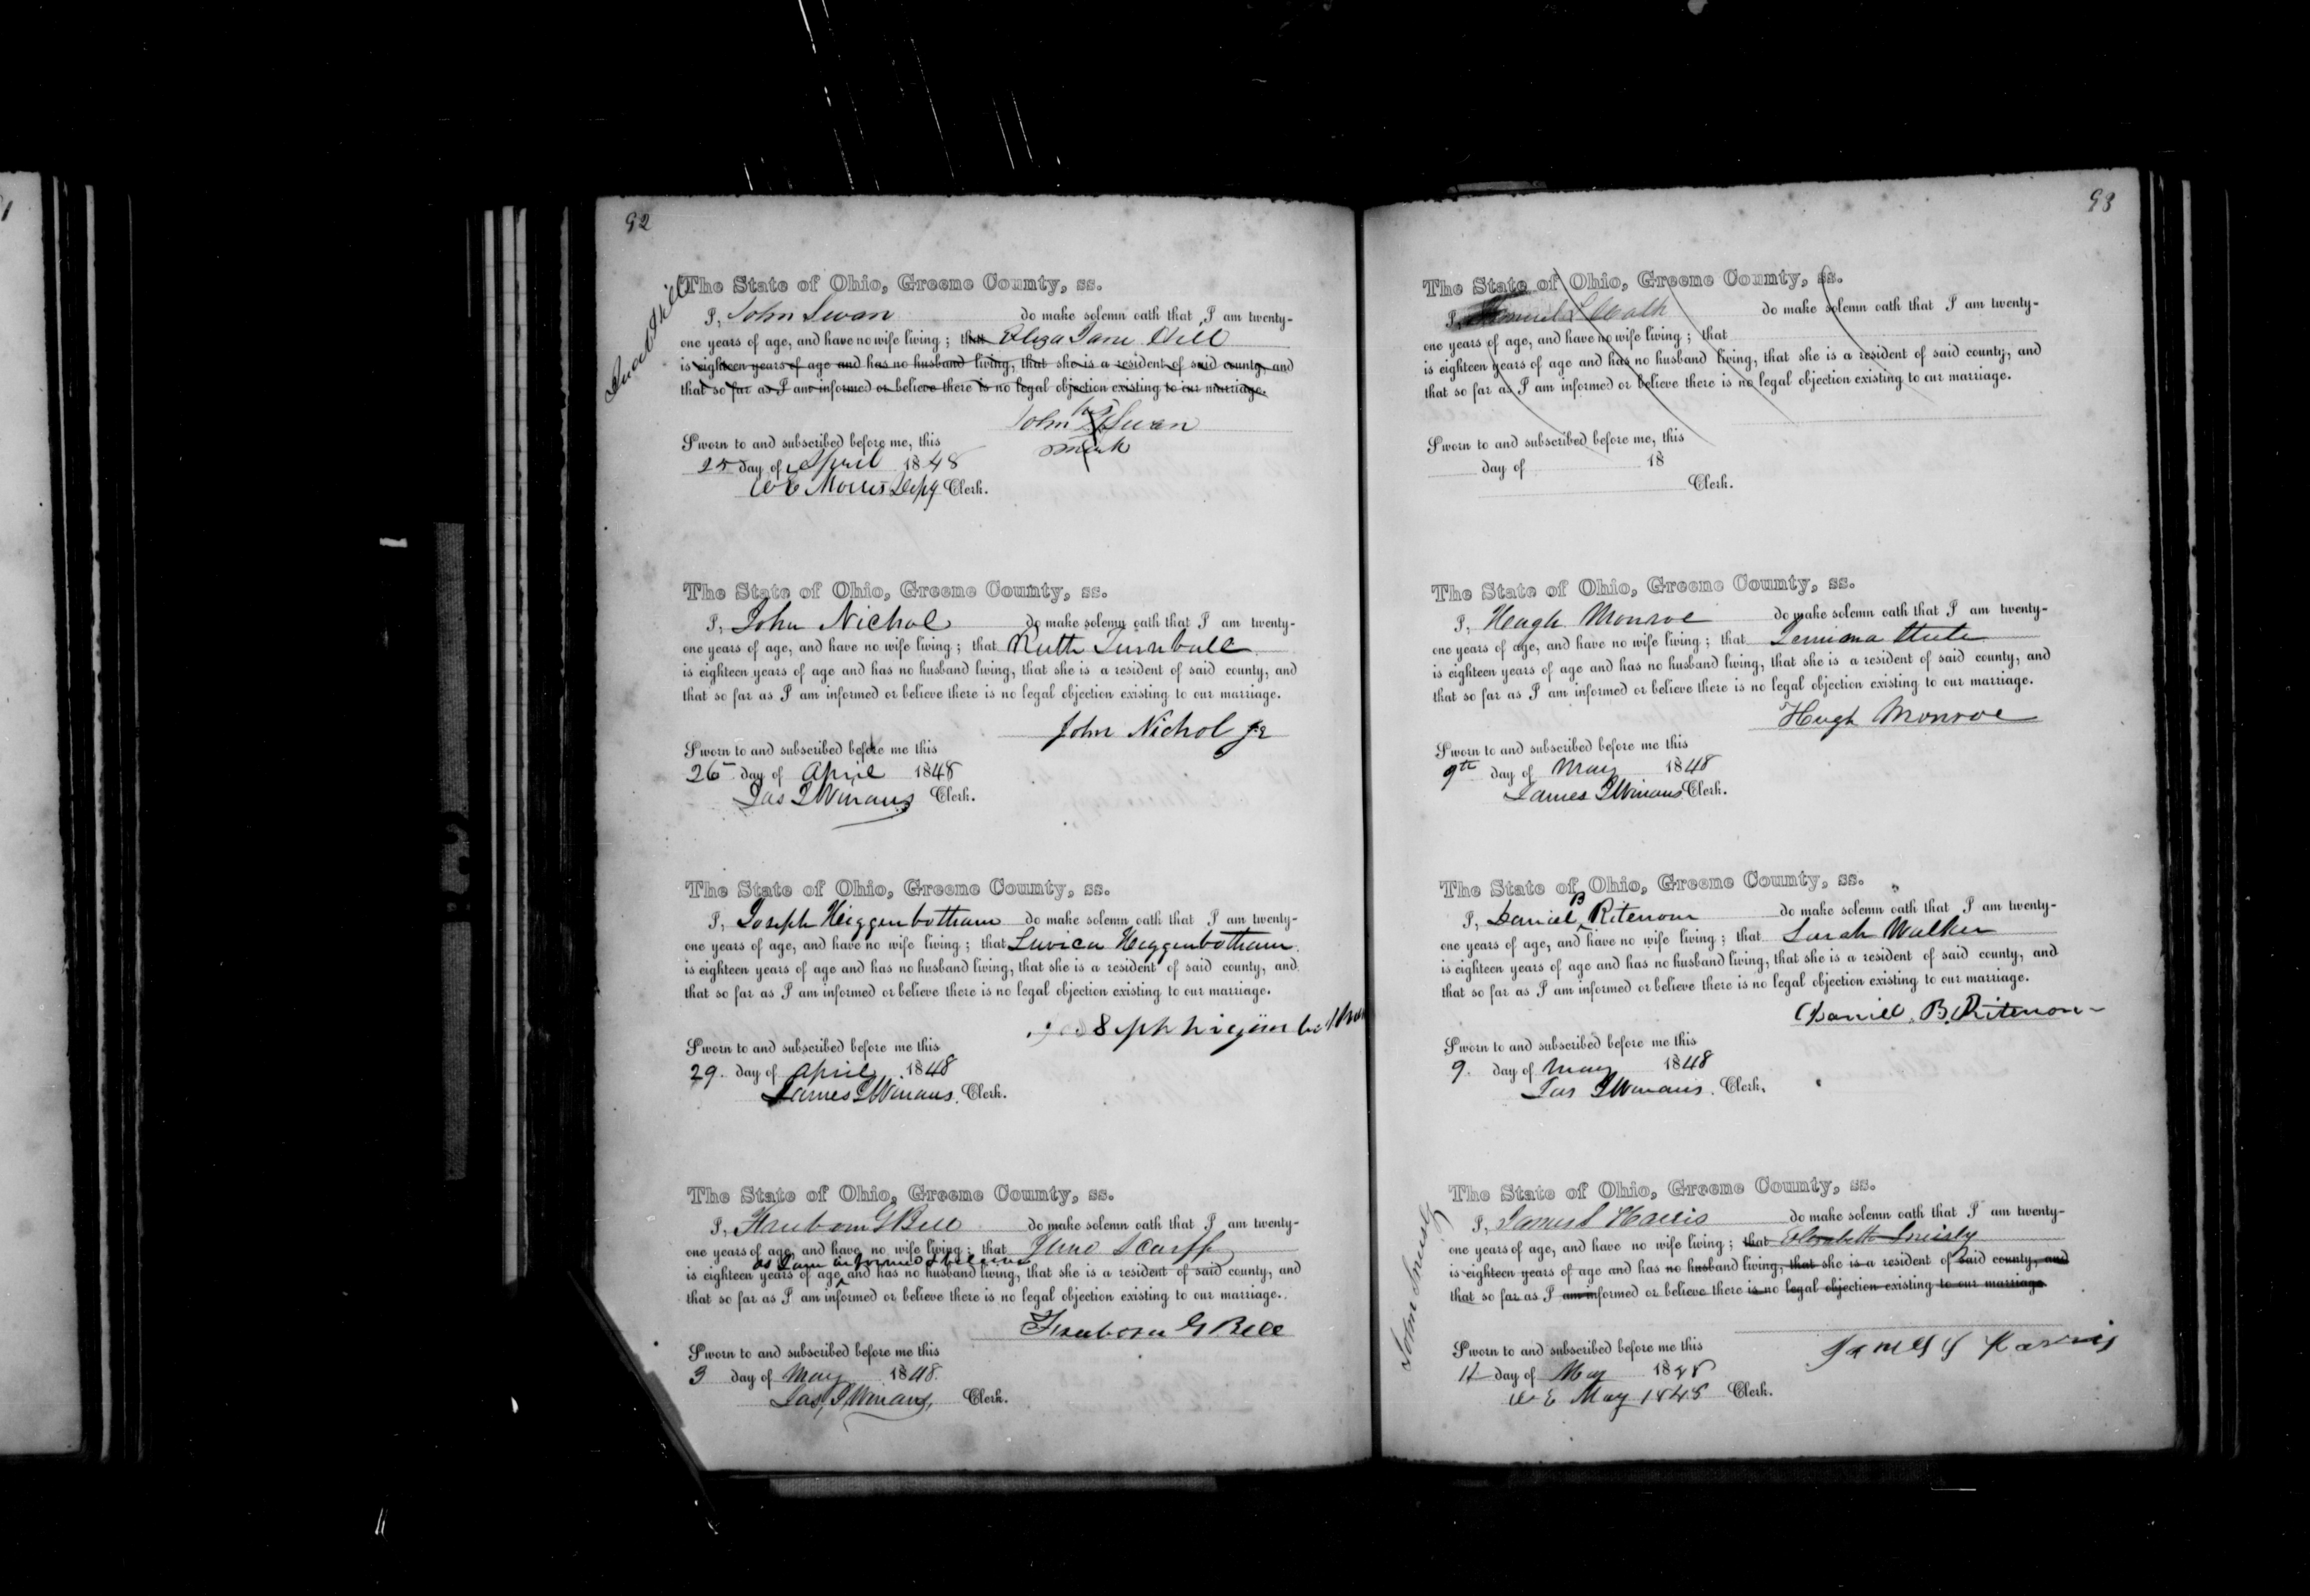 92
The State of Ohio, Greene County, ss.
I, John Swan do make solemn oath that I am twenty-
one years of age, and have no wife living; that Eliza Jane Hill
is eighteen years of age and has no husband living, that she is a resident of said county, and
that so far as I am informed or believe there is no legal objection existing to our marriage.
his
John X Swan
mark
Sworn to and subscribed before me, this
25 day of April 1848
W E Morris Depy Clerk.
The State of Ohio, Greene County, ss.
I, John Nichol do make solemn oath that I am twenty-
one years of age, and have no wife living; that Ruth Turnbull
is eighteen years of age and has no husband living, that she is a resident of said county, and
that so far as I am informed or believe there is no legal objection existing to our marriage.
John Nichol Jr
Sworn to and subscribed before me this
26 day of April 1848
Jas J Winans Clerk.
The State of Ohio, Greene County, ss.
I, Joseph Higgenbotham do make solemn oath that I am twenty-
one years of age, and have no wife living; that Luvica Higgenbotham
is eighteen years of age and has no husband living, that she is a resident of said county, and
that so far as I am informed or believe there is no legal objection existing to our marriage.
Sworn to and subscribed before me this
29. day of April 1848
James J Winans. Clerk.
The State of Ohio, Greene County, ss.
I, Freeborn G Bell do make solemn oath that I am twenty-
one years of age, and have no wife living; that Jane Scarff
as I am informed & believe
is eighteen years of age and has no husband living, that she is a resident of said county, and
that so far as I am informed or believe there is no legal objection existing to our marriage.
Freeborn G Bell
Sworn to and subscribed before me this
3 day of May 1848.
Jas, J Winans, Clerk.
93
The State of Ohio, Greene County, ss.
I, Samuel do make solemn oath that I am twenty-
one years of age, and have no wife living; that
is eighteen years of age and has no husband living, that she is a resident of said county, and
that so far as I am informed or believe there is no legal objection existing to our marriage.
Sworn to and subscribed before me, this
day of 18
Clerk.
The State of Ohio, Greene County, ss.
I, Hugh Monroe do make solemn oath that I am twenty-
one years of age, and have no wife living; that Jemima
is eighteen years of age and has no husband living, that she is a resident of said county, and
that so far as I am informed or believe there is no legal objection existing to our marriage.
Hugh Monroe
Sworn to and subscribed before me this
9th day of May 1848
James J Winans Clerk.
The State of Ohio, Greene County, ss.
I, Daniel B Ritenour do make solemn oath that I am twenty-
one years of age, and have no wife living; that Sarah Walker
is eighteen years of age and has no husband living, that she is a resident of said county, and
that so far as I am informed or believe there is no legal objection existing to our marriage.
Daniel. B. Ritenour
Sworn to and subscribed before me this
9. day of May 1848
Jas J Winans. Clerk,
The State of Ohio, Greene County, ss.
I, James S Harris do make solemn oath that I am twenty-
one years of age, and have no wife living; that Elizabeth Snively
is eighteen years of age and has no husband living, that she is a resident of said county, and
that so far as I am informed or believe there is no legal objection existing to our marriage
John Snively
James S Harris
Sworn to and subscribed before me this
11 day of May 1848
W E May 1848 Clerk.